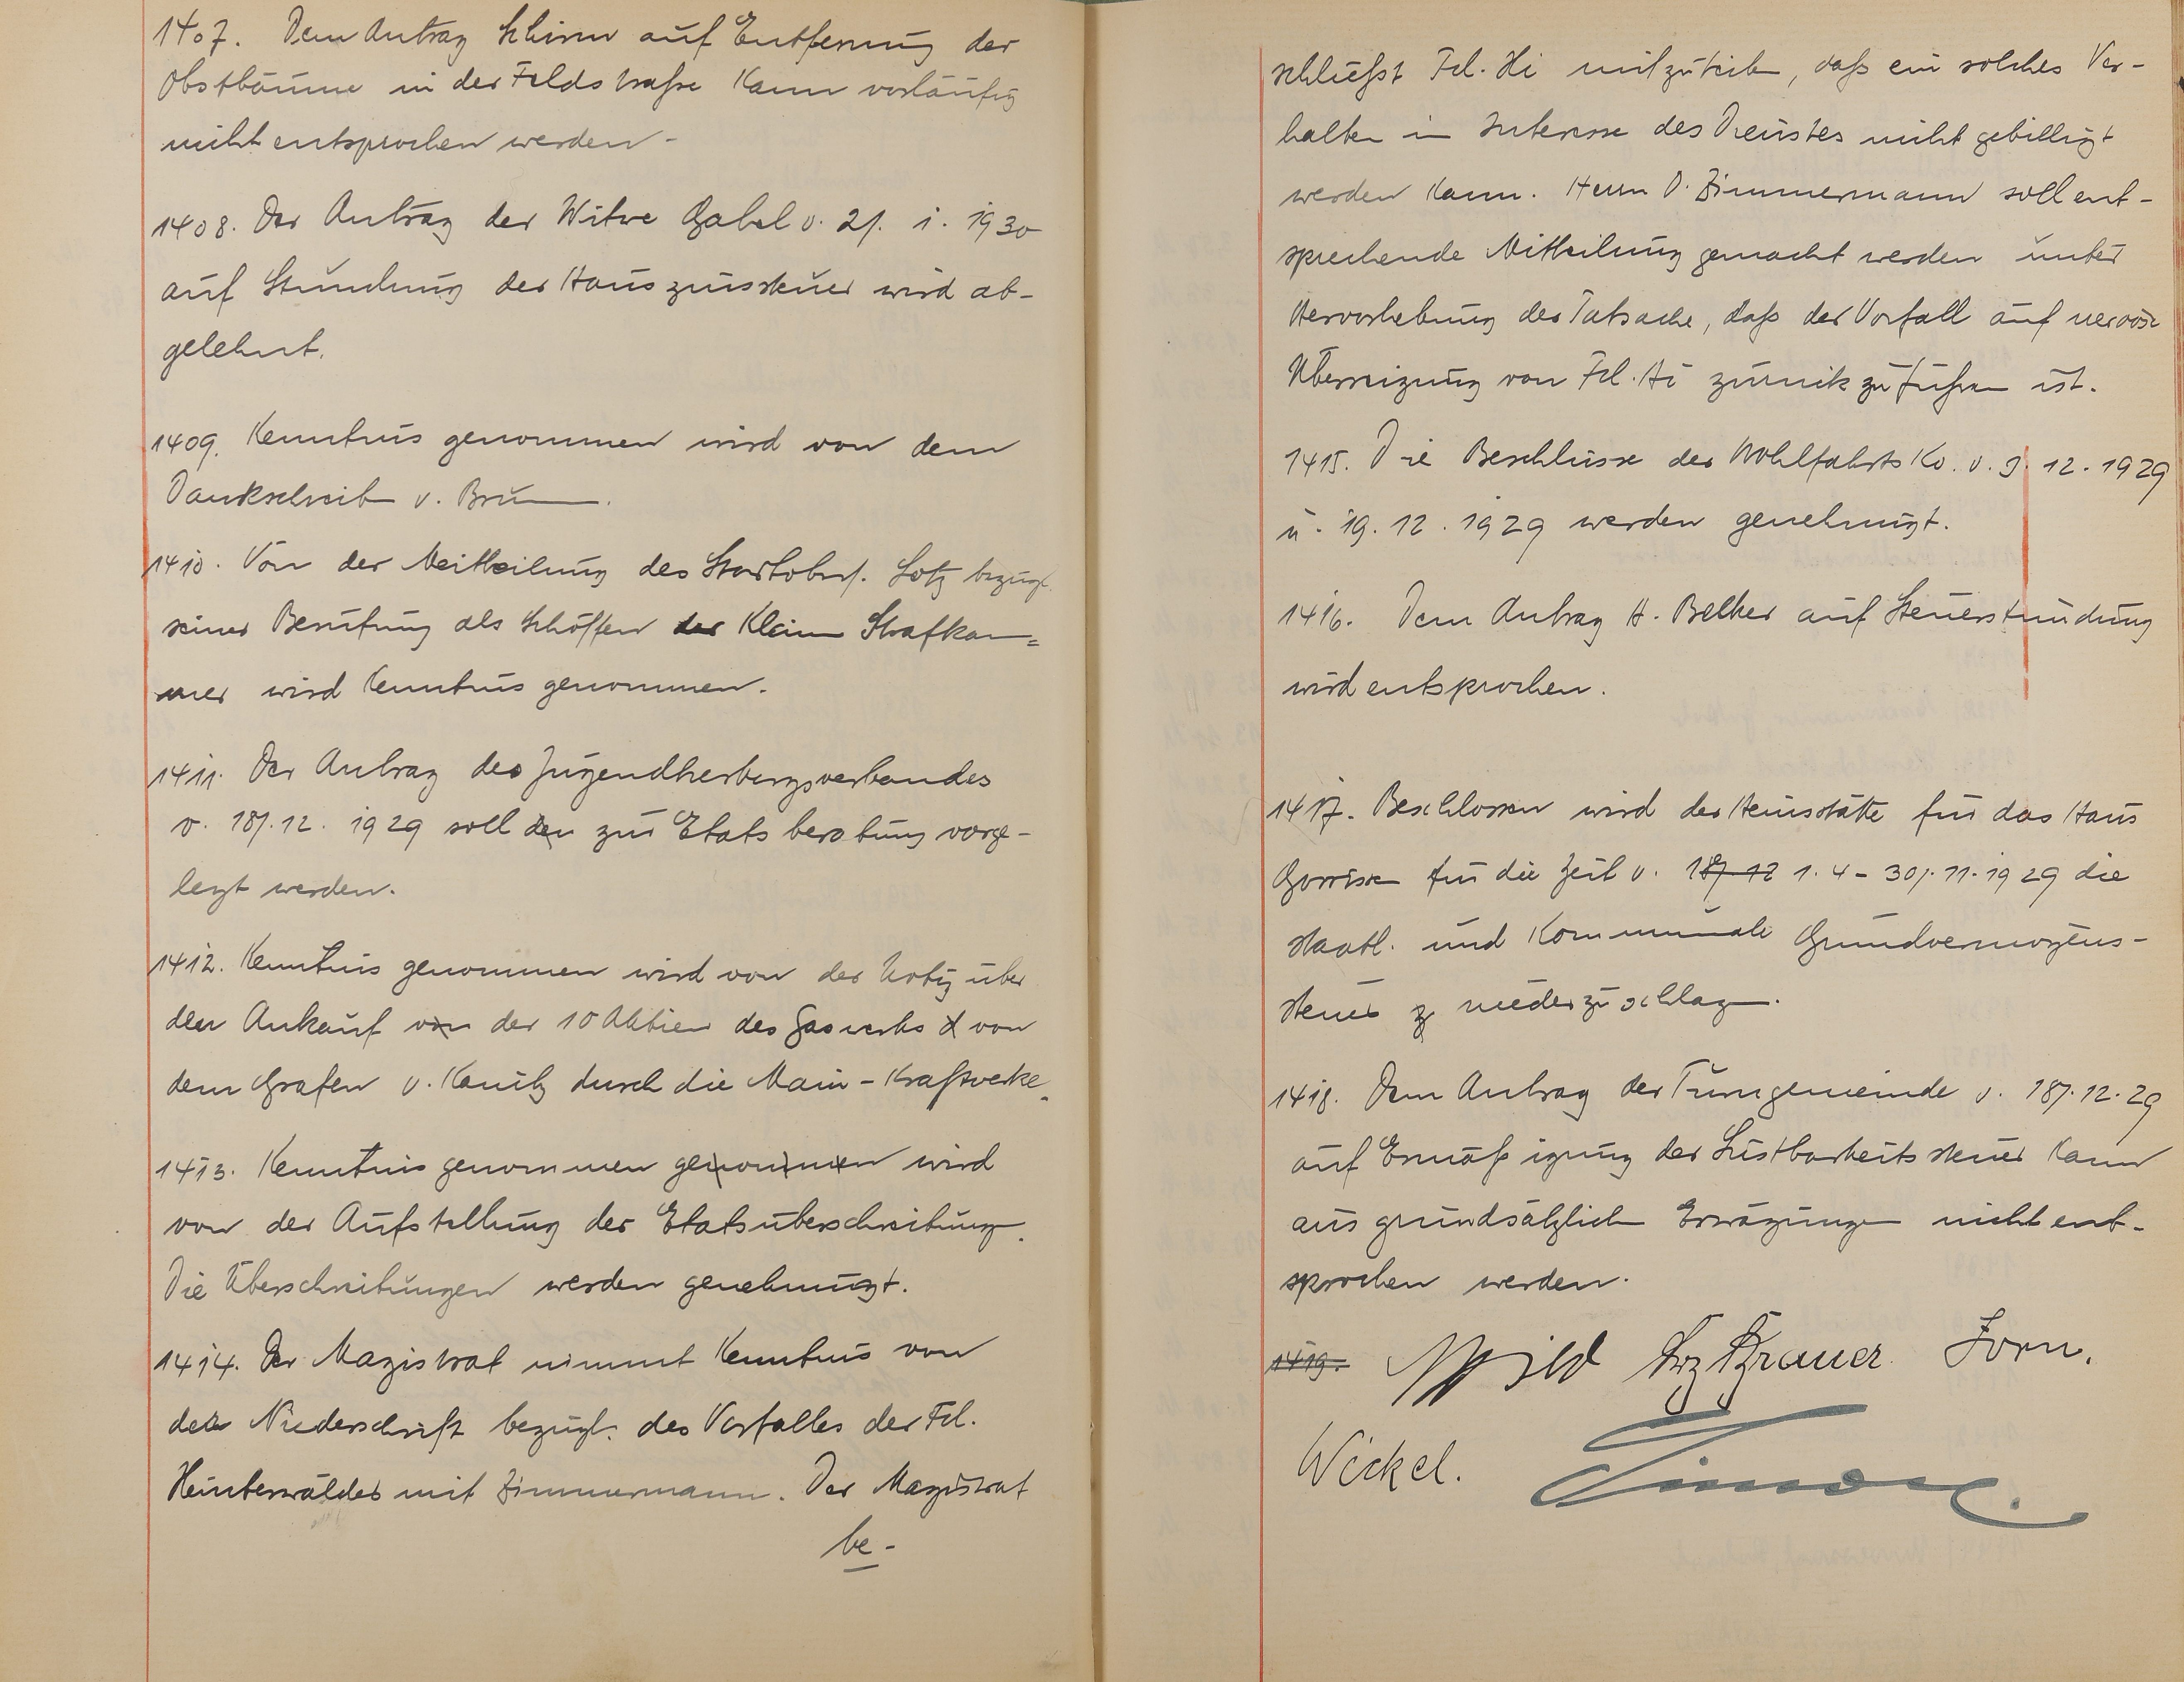 1407. Dem Antrag Schirm auf Entfernung der
Obstbäume in der Feldstraße kann vorläufig
nicht entsprochen werden -
1408. Der Antrag der Witwe Gabel v. 2/. 1. 1930
auf Stundung der Hauszinssteuer wird ab-
gelehnt.
1409. Kenntnis genommen wird von dem
Dankschreiben v.
1410. Von der Mitteilung des Lotz bezügl.
seiner Berufung als Schöffen der kleinen Strafkam=
mer wird Kenntnis genommen.
1411. Der Antrag des Jugendherbergsverbandes
v. 18/. 12. 1929 soll den zur Etatsberatung vorge-
legt werden.
1412. Kenntnis genommen wird von der Notiz über
den Ankauf von der 10 Aktien des Gaswerks d von
dem Grafen v. Kanitz durch die Main-Kraftwerke.
1413. Kenntnis genommen genommen wird
von der Aufstellung der Etatsüberschreitungen.
Die Überschreitungen werden genehmigt.
1414. Der Magistrat nimmt Kenntnis von
der Niederschrift bezügl. des Vorfalles der Frl.
Hinterwälder mit Zimmermann. Der Magistrat
be-
schließt Frl. Hi mitzuteilen, daß ein solches Ver-
halten im Interesse des Dienstes nicht gebilligt
werden kann. Herrn O. Zimmermann soll ent-
sprechende Mitteilung gemacht werden unter
Hervorhebung der Tatsache, daß der Vorfall auf nervöse
Überreizung von Frl. Hi zurückzuführen ist.
1415. Die Beschlüsse der Wohlfahrts Ko. v. 9. 12. 1929
u. 19. 12. 1929 werden genehmigt.
1416. Dem Antrag H. Belker auf Steuerstundung
wird entsprochen.
1417. Beschlossen wird der Heimstätte für das Haus
für die Zeit v. 18/ 12 1. 4 - 30/. 11. 1929 die
staatl. und kommunale Grundvermögens-
steuer z niederzuschlagen.
1418. Dem Antrag der Turngemeinde v. 18/. 12. 29
auf Ermäßigung der Lustbarkeitssteuer kann
aus grundsätzlichen Erwägungen nicht ent-
sprochen werden.
1419. Krauer Zorn.
Wickel. Simon.